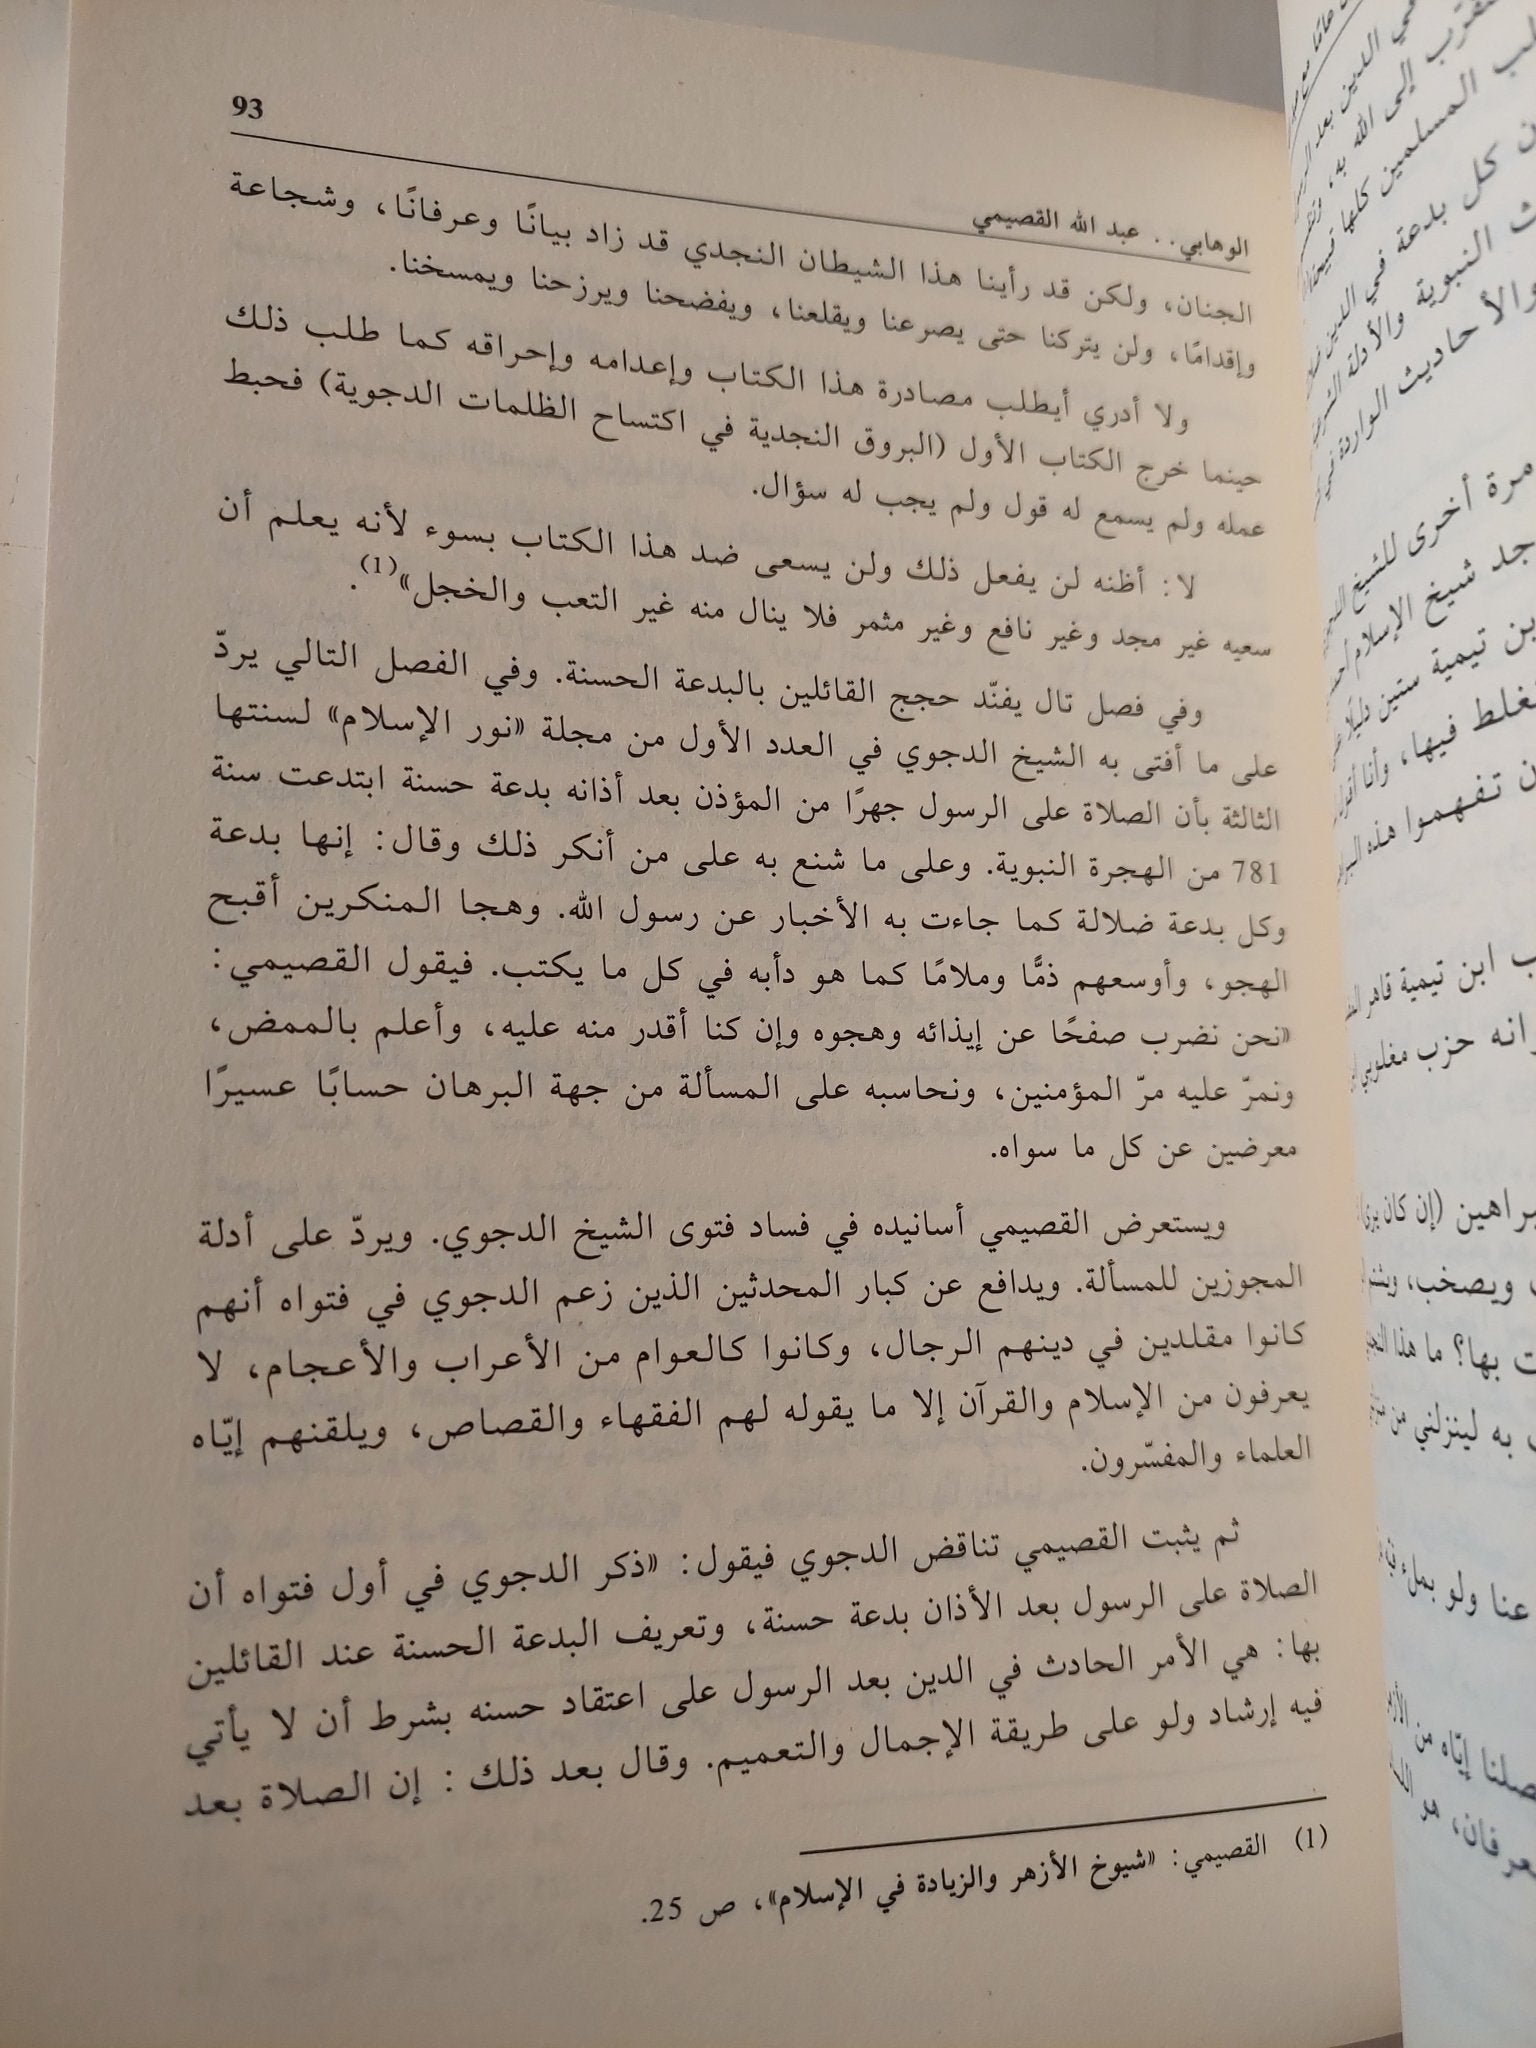 93
الوهابي.. عبد الله القصيمي
الجنان، ولكن قد رأينا هذا الشيطان النجدي قد زاد بيانًا وعرفانًا، وشجاعة
وإقدامًا، ولن يتركنا حتى يصرعنا ويقلعنا، ويفضحنا ويرزحنا ويمسخنا.
ولا أدري أيطلب مصادرة هذا الكتاب وإعدامه وإحراقه كما طلب ذلك
حينما خرج الكتاب الأول (البروق النجدية في اكتساح الظلمات الدجوية) فحبط
عمله ولم يسمع له قول ولم يجب له سؤال.
لا: أظنه لن يفعل ذلك ولن يسعى ضد هذا الكتاب بسوء لأنه يعلم أن
سعيه غير مجد وغير نافع وغير مثمر فلا ينال منه غير التعب والخجل»(1).
وفي فصل تال يفنّد حجج القائلين بالبدعة الحسنة. وفي الفصل التالي يردّ
على ما أفتى به الشيخ الدجوي في العدد الأول من مجلة «نور الإسلام» لسنتها
الثالثة بأن الصلاة على الرسول جهرًا من المؤذن بعد أذانه بدعة حسنة ابتدعت سنة
781 من الهجرة النبوية. وعلى ما شنع به على من أنكر ذلك وقال: إنها بدعة
وكل بدعة ضلالة كما جاءت به الأخبار عن رسول الله. وهجا المنكرين أقبح
الهجو، وأوسعهم ذمًّا وملامًا كما هو دأبه في كل ما يكتب. فيقول القصيمي:
«نحن نضرب صفحًا عن إيذائه وهجوه وإن كنا أقدر منه عليه، وأعلم بالممض،
ونمرّ عليه مرّ المؤمنين، ونحاسبه على المسألة من جهة البرهان حسابًا عسيرًا
معرضين عن كل ما سواه.
ويستعرض القصيمي أسانيده في فساد فتوى الشيخ الدجوي. ويردّ على أدلة
المجوزين للمسألة. ويدافع عن كبار المحدثين الذين زعم الدجوي في فتواه أنهم
كانوا مقلدين في دينهم الرجال، وكانوا كالعوام من الأعراب والأعجام، لا
يعرفون من الإسلام والقرآن إلا ما يقوله لهم الفقهاء والقصاص، ويلقنهم إيّاه
العلماء والمفسّرون.
ثم يثبت القصيمي تناقض الدجوي فيقول: «ذكر الدجوي في أول فتواه أن
الصلاة على الرسول بعد الأذان بدعة حسنة، وتعريف البدعة الحسنة عند القائلين
بها: هي الأمر الحادث في الدين بعد الرسول على اعتقاد حسنه بشرط أن لا يأتي
فيه إرشاد ولو على طريقة الإجمال والتعميم. وقال بعد ذلك: إن الصلاة بعد
(1) القصيمي: «شيوخ الأزهر والزيادة في الإسلام»، ص 25.
في الدين بعد
إلى الله به،
المسلمين كلها
كل بدعة في الدين
النبوية والأدلة
والأحاديث الواردة في
مرة أخرى للشيخ
شيخ الإسلام
بن تيمية ستين دليلًا
فيها، وأنا أقول
تفهموا هذه
ابن تيمية قاهر
حزب
(إن كان يرى
ويصخب،
بها؟ ما هذا
به لينزلني من
عنا ولو بملء
إيّاه من
هو